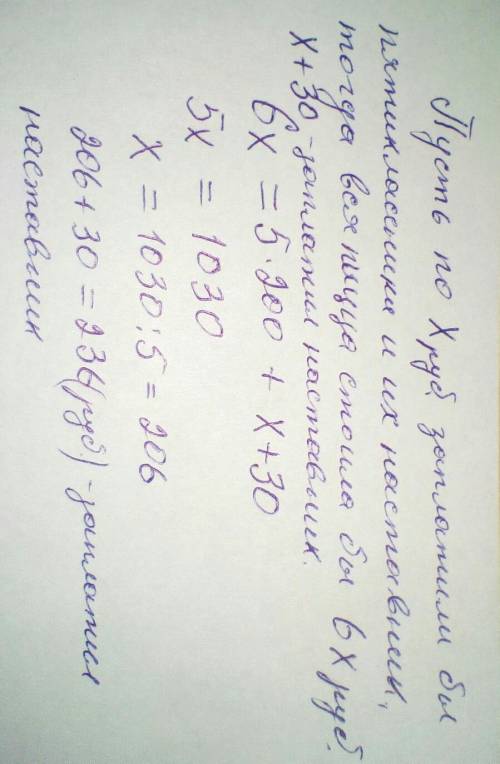 Пусть по х руб. заплатили бы
пятиклассники и их наставник,
тогда вся пицца стоила бы 6х руб.
х+30 - заплатил наставник.
6х = 5·200 + х+30
5х = 1030
х = 1030:5 = 206
206+30 = 236(руб) - заплатил
наставник